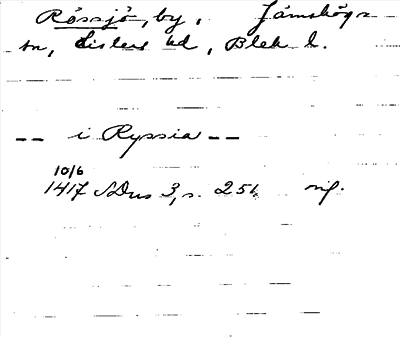 Rössjö, by, Jämshögs
sn, Listers hd, Blek. l.
-- i Ryssia --
10/6
1417 SDns 3, s. 251. nif.